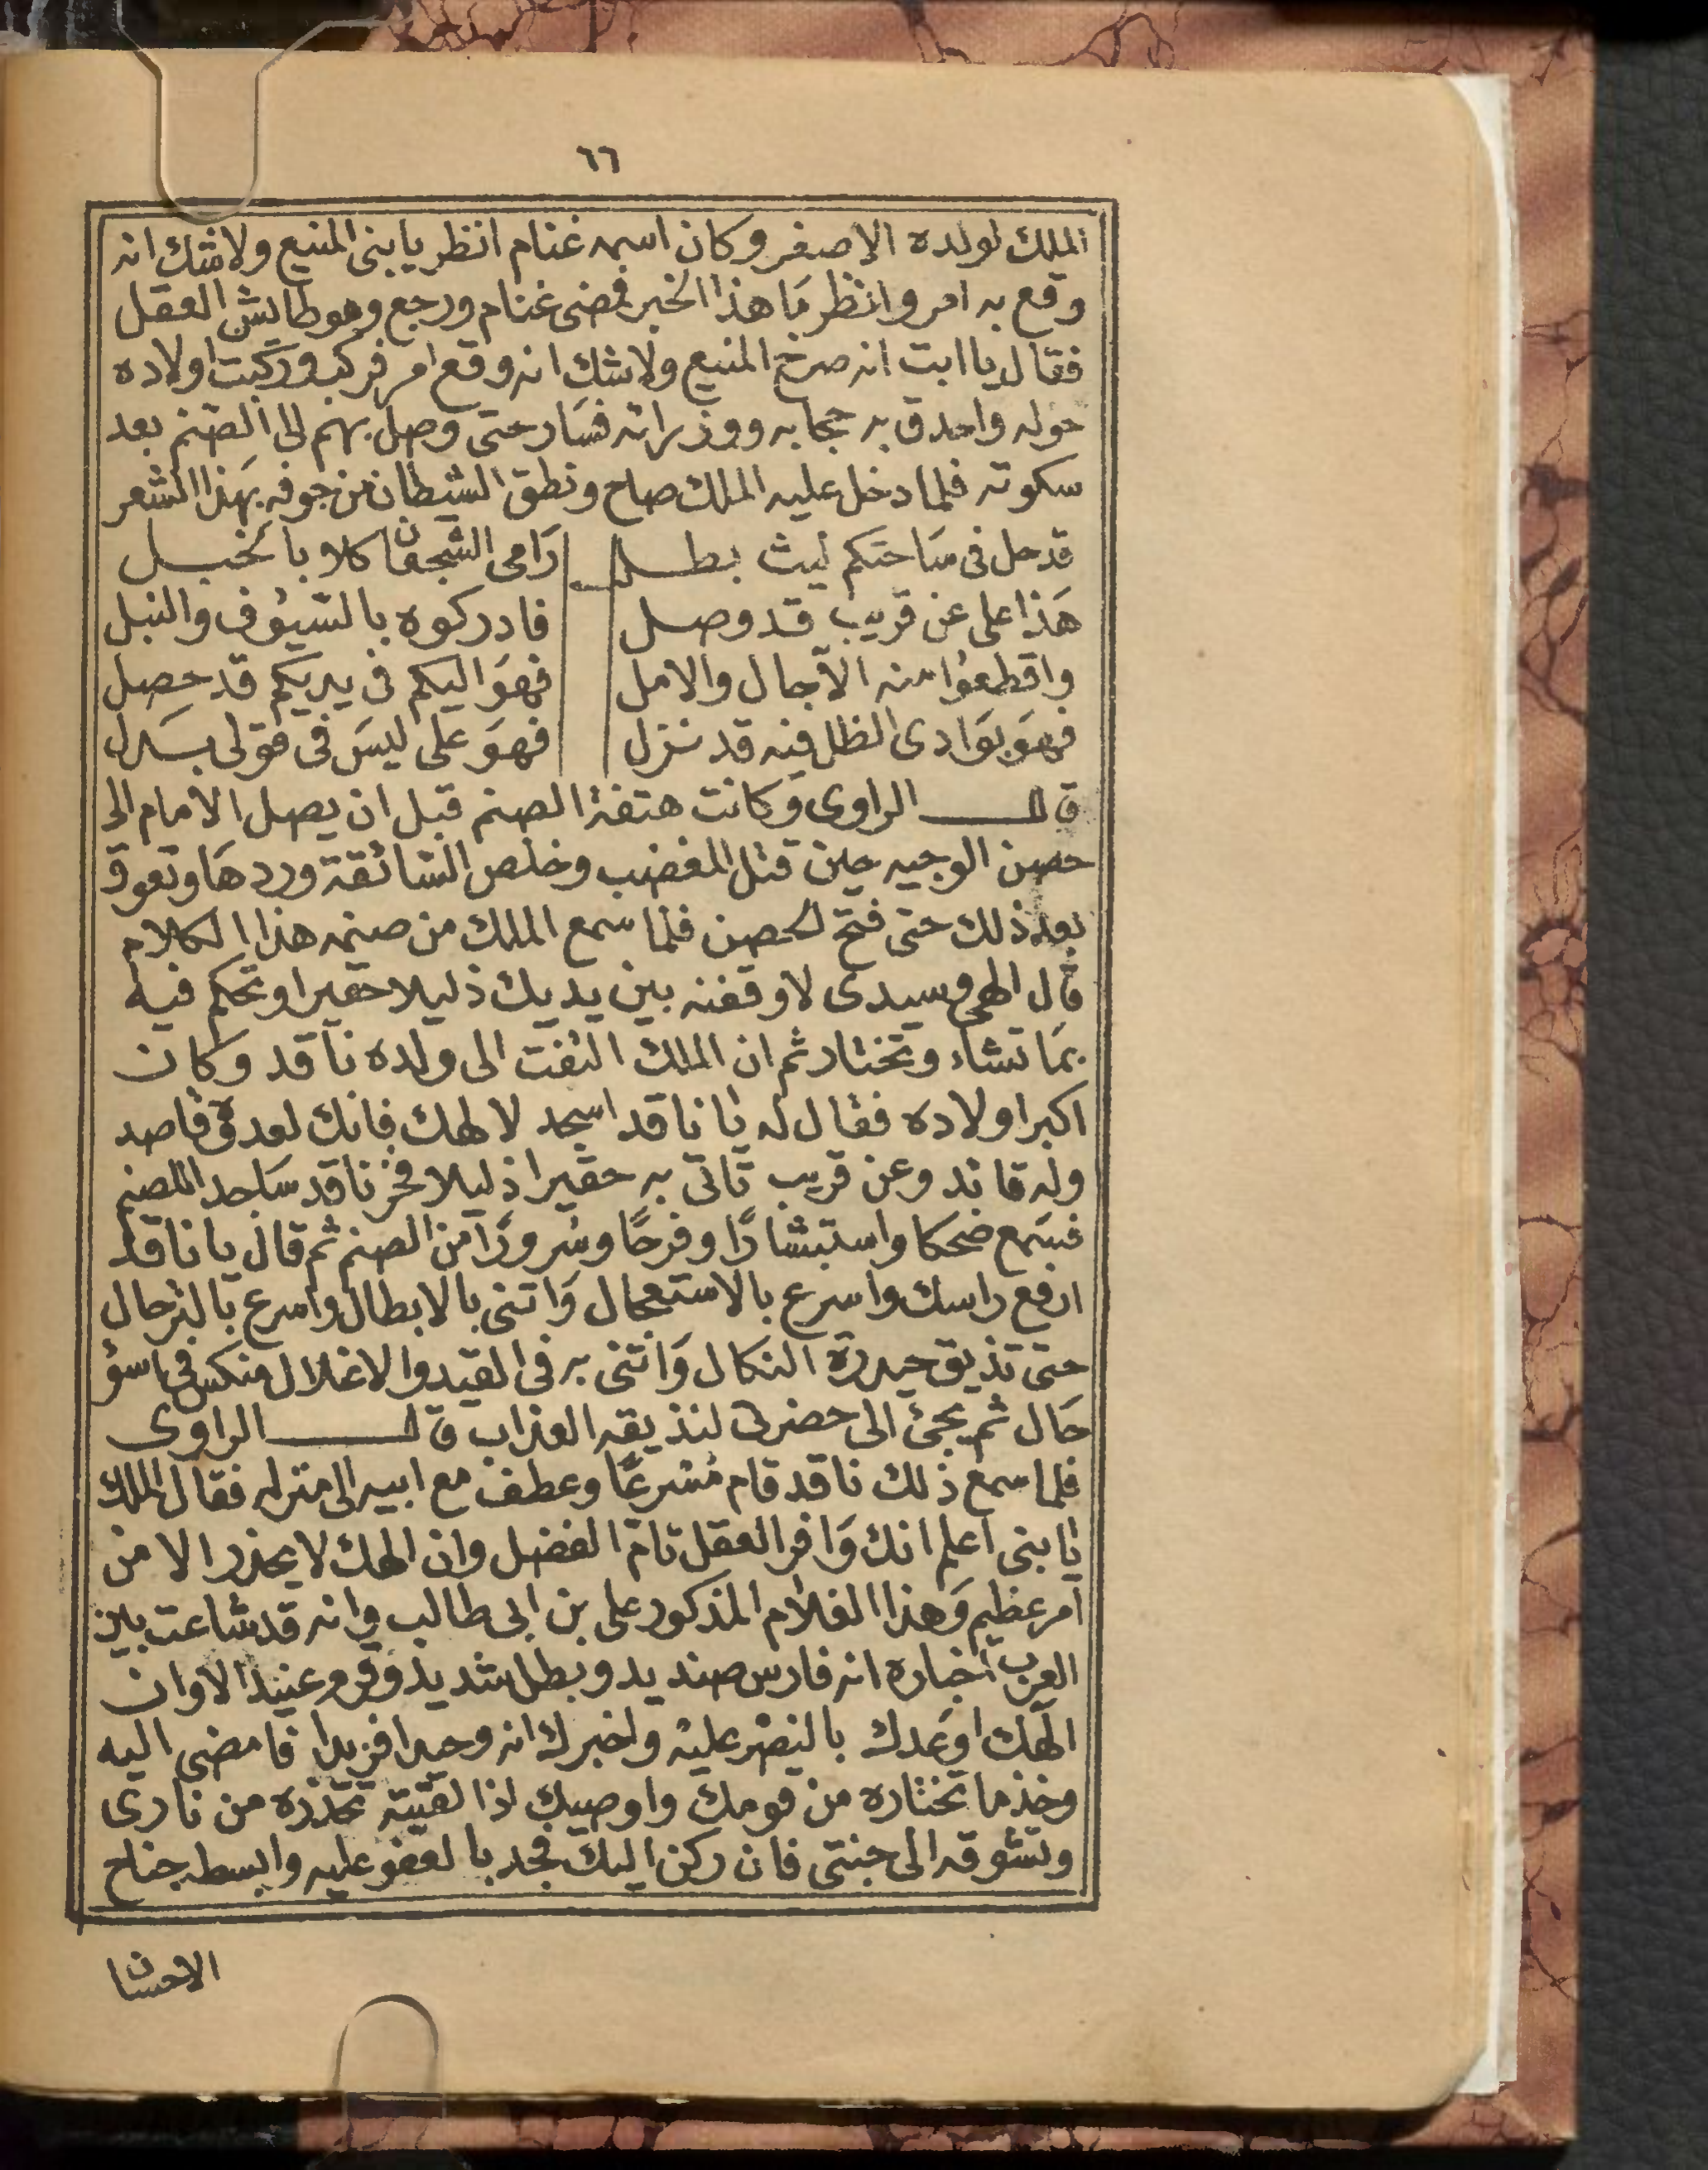 ٦٦
الملك لولده الاصغر وكان اسمه غنام انظر يا بنى المنيع ولاشك انه
وقع به امر وانظر مَا هذا الخبر فمضى غنام ورجع وهو طايش العقل
فقال يا ابت انه صرخ المنيع ولاشك انه وقع امر فركب وركبت اولاده
حوله واحدق به حجابه ووزرائه فسَار حتى وصل بهم الى الصنم بعد
سكوته فلما دخل عليه الملك صاح ونطق الشيطان من جوفه بهَذا الشعر
قد حل فى سَاحتَكم ليث بطل رَامى الشجعان كلا بالخبل
هَذا على عن قريب قد وصل فادركوه بالسّيُوف والنبل
واقطعُوا منه الآجال والامل فهوَ اليكم فى يديكم قد حصل
فهوَ بوَادى الظل فيه قد نزل فهوَ على ليسَ فى قولى بسَدل
قال الراوى وَكانت هتفة الصنم قبل ان يصل الامام الى
حصن الوجيه حين قتل المغضب وخلص السّائقة وردهَا وتعوق
بعد ذلك حتى فتح الحصن فلما سمع الملك من صنمه هذا الكلام
قال الهى وسيدى لاوقفنه بين يديك ذليلا حقيرا وتحكم فيه
بمَا تشاء وتختار ثم ان الملك التفت الى ولده ناقد وكان
اكبر اولاده فقال له يا ناقد اسجد لالهك فانك لعدوه قاصد
وله قائد وعن قريب تاتى به حقيرا ذليلا فخر ناقد سَاجدا للصنم
فسَمع ضحكا واستبشارًا وفرحًا وسُرورًا من الصنم ثم قال يا ناقد
ارفع راسك واسرع بالاستعجال وَاتنى بالابطال واسرع بالترحال
حتى تذيق حيدرة النكال وَاتنى به فى القيد والاغلال منكس فى اسؤ
حَال ثم يجئ الى حضرتى لنذيقه العذاب قال الراوى
فلما سمع ذلك ناقد قام مُسْرعًا وعطف مع ابيه الى منزله فقال الملك
يا بنى اعلم انك وَافر العقل تام الفضل وان الهك لا يحذر الا من
امر عظيم وَهذا الغلام المذكور على بن ابى طالب وانه قد شاعت بين
العرب اخباره انه فارس صنديد وبطل شديد وقرم عنيد الا وان
الَهك اوعَدك بالنصْر عليه واخبرك انه وحيدا فريدا فامضى اليه
وخذ ما تختاره من قومك واوصيك اذا لقيته تحذره من نارى
وتشوقه الى جنتى فان ركن اليك فجد بالعفو عليه وابسط جناح
الاحسان